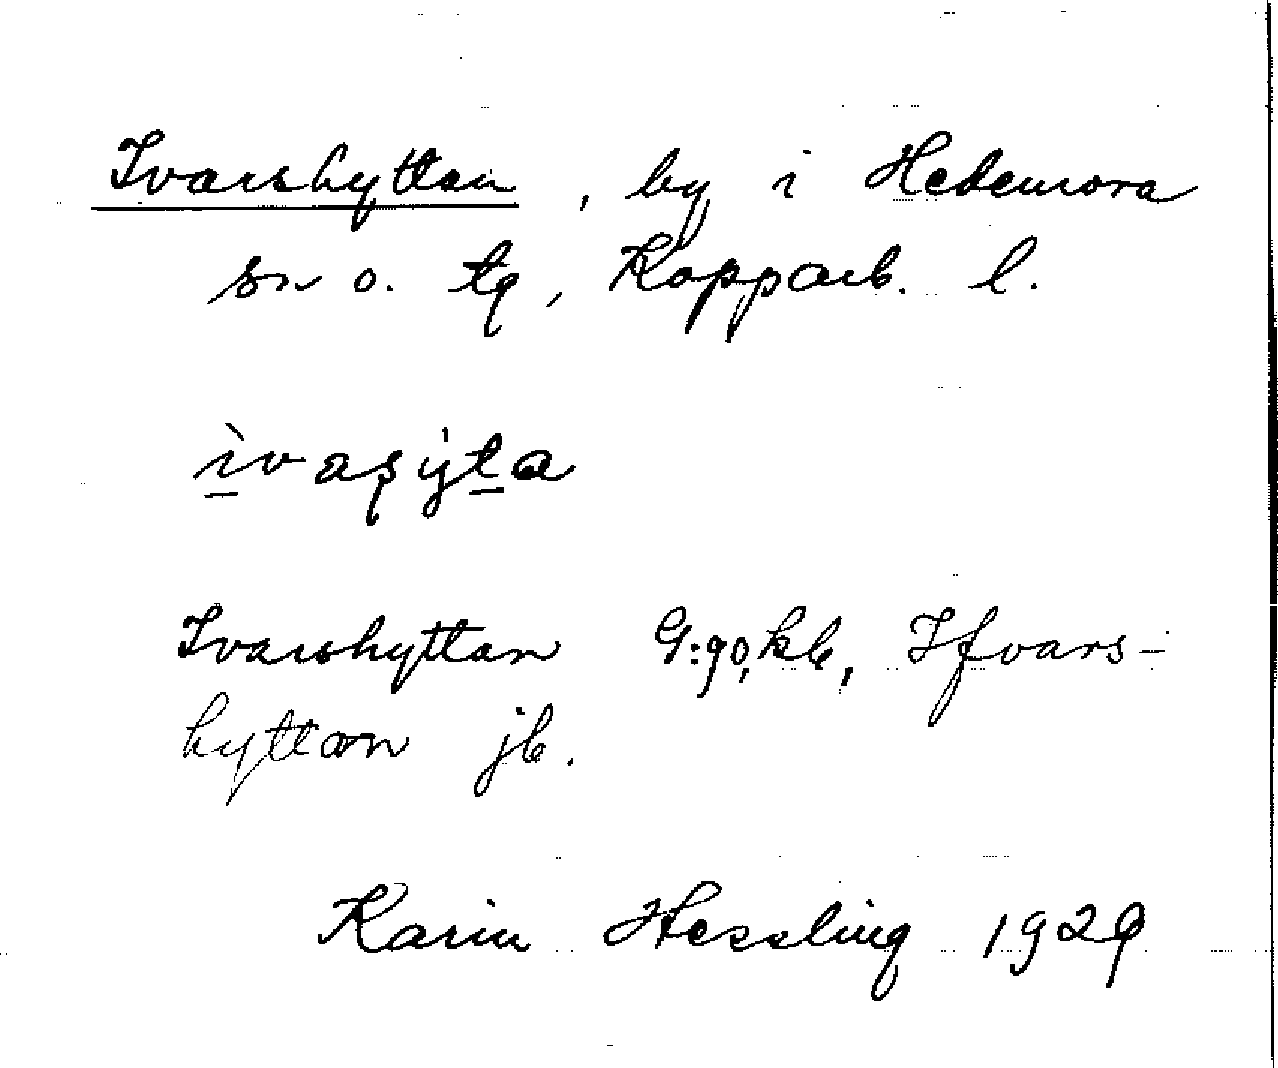 Ivarshyttan, by i Hedemora
sn o. tg, Kopparb. l.
ìvaşy̍ta
Ivarshyttan G:90, kb, Ifvars-
hyttan jb.
Karin Hessling 1929